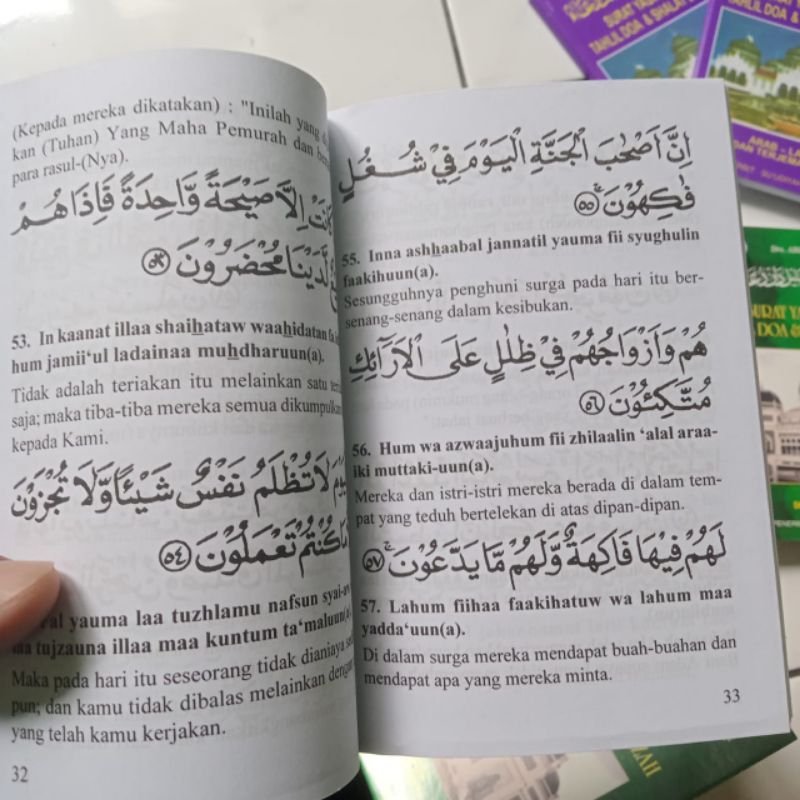 (Kepada mereka dikatakan) : "Inilah yang
kan (Tuhan) Yang Maha Pemurah dan
para rasul-(Nya).
كَانَتْ اِلَّا صَيْحَةً وَّاحِدَةً فَاِذَا هُمْ
لَّدَيْنَا مُحْضَرُوْنَ ٥٣
53. In kaanat illaa shaihataw waahidatan fa
hum jamii‘ul ladainaa muhdharuun(a).
Tidak adalah teriakan itu melainkan satu
saja; maka tiba-tiba mereka semua dikumpulkan
kepada Kami.
لَا تُظْلَمُ نَفْسٌ شَيْئًا وَّلَا تُجْزَوْنَ
مَا كُنْتُمْ تَعْمَلُوْنَ ٥٤
yauma laa tuzhlamu nafsun syai-aw
tujzauna illaa maa kuntum ta‘maluun(a).
Maka pada hari itu seseorang tidak dianiaya
pun; dan kamu tidak dibalas melainkan dengan
yang telah kamu kerjakan.
32
اِنَّ اَصْحٰبَ الْجَنَّةِ الْيَوْمَ فِيْ شُغُلٍ
فٰكِهُوْنَ ۚ ٥٥
55. Inna ashhaabal jannatil yauma fii syughulin
faakihuun(a).
Sesungguhnya penghuni surga pada hari itu ber-
senang-senang dalam kesibukan.
هُمْ وَاَزْوَاجُهُمْ فِيْ ظِلٰلٍ عَلَى الْاَرَاۤئِكِ
مُتَّكِئُوْنَ ٥٦
56. Hum wa azwaajuhum fii zhilaalin ‘alal araa-
iki muttaki-uun(a).
Mereka dan istri-istri mereka berada di dalam tem-
pat yang teduh bertelekan di atas dipan-dipan.
لَهُمْ فِيْهَا فَاكِهَةٌ وَّلَهُمْ مَّا يَدَّعُوْنَ ۚ ٥٧
57. Lahum fiihaa faakihatuw wa lahum maa
yadda‘uun(a).
Di dalam surga mereka mendapat buah-buahan dan
mendapat apa yang mereka minta.
33
SURAT
TAHLIL DOA & SHALAT
TAHLIL DOA &
ARAB – LA
DAN TERJEMA
SURAT YA
DOA &